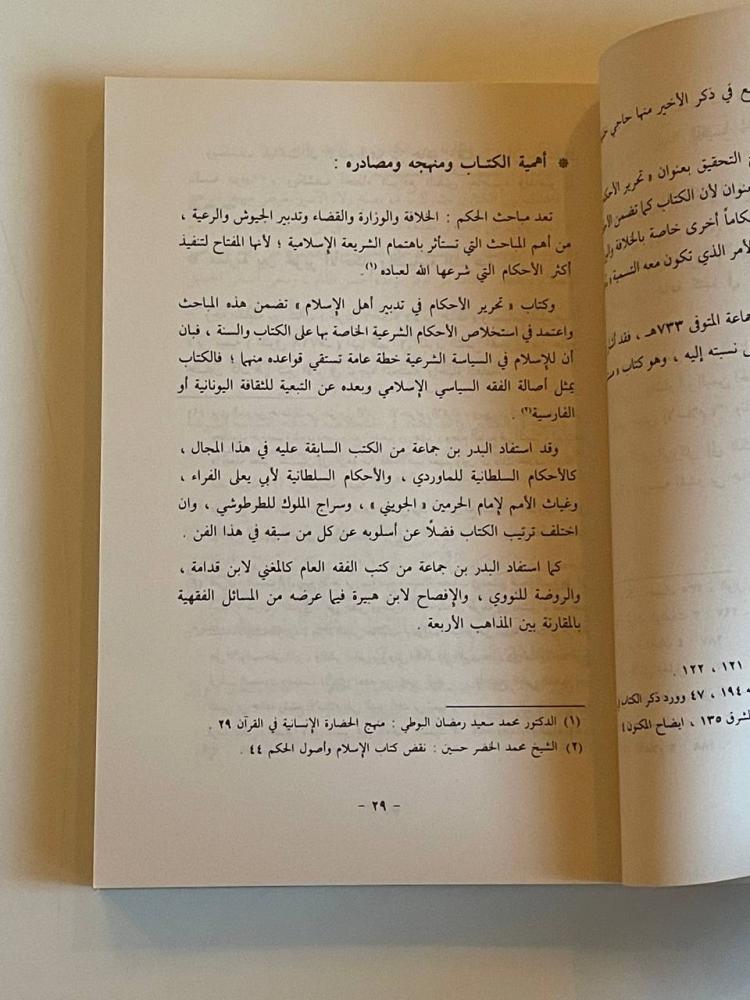 * أهمية الكتـاب ومنهجه ومصادره :
تعد مباحث الحكم : الخلافة والوزارة والقضاء وتدبير الجيوش والرعية ،
من أهم المباحث التي تستأثر باهتمام الشريعة الإسلامية ؛ لأنها المفتاح لتنفيذ
أكثر الأحكام التي شرعها الله لعباده(١).
وكتاب « تحرير الأحكام في تدبير أهل الإسلام » تضمن هذه المباحث
واعتمد في استخلاص الأحكام الشرعية الخاصة بها على الكتاب والسنة ، فبان
أن للإسلام في السياسة الشرعية خطة عامة تستقي قواعده منهما ؛ فالكتاب
يمثل أصالة الفقه السياسي الإسلامي وبعده عن التبعية للثقافة اليونانية أو
الفارسية(٢) .
وقد استفاد البدر بن جماعة من الكتب السابقة عليه في هذا المجال ،
كالأحكام السلطانية للماوردي ، والأحكام السلطانية لأبي يعلى الفراء ،
وغياث الأمم لإمام الحرمين « الجويني » ، وسراج الملوك للطرطوشي ، وان
اختلف ترتيب الكتاب فضلًا عن أسلوبه عن كل من سبقه في هذا الفن .
كما استفاد البدر بن جماعة من كتب الفقه العام كالمغني لابن قدامة ،
والروضة للنووي ، والإفصاح لابن هبيرة فيما عرضه من المسائل الفقهية
بالمقارنة بين المذاهب الأربعة .
(١) الدكتور محمد سعيد رمضان البوطي : منهج الحضارة الإنسانية في القرآن ٢٩ .
(٢) الشيخ محمد الخضر حسين : نقض كتاب الإسلام وأصول الحكم ٤٤ .
- ٢٩ -
في ذكر الأخير منها حاجي
التحقيق بعنوان « تحرير
لأن الكتاب كما تضمن
أخرى خاصة بالخلافة
الذي تكون معه التسمية
المتوفى ٧٣٣هـ ، فقد
نسبته إليه ، وهو كتاب
١٢١ ، ١٢٢ .
١٩٤ ، ٤٧ وورد ذكر الكتاب
١٣٥ ، ايضاح المكنون